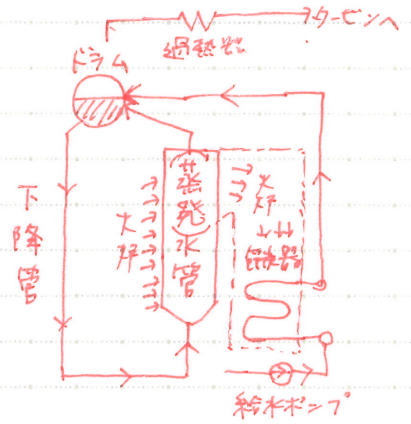 タービンへ
過熱器
ドラム
下降管
火炉
蒸発水管
火炉
節炭器
給水ポンプ